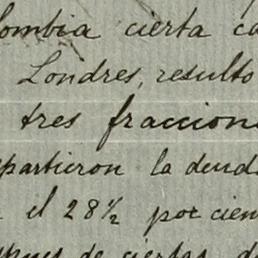 lombia cierta ca
Londres, resultó
tres fraccion
partieron la deuda
el 28½ por cien
de ciertas d